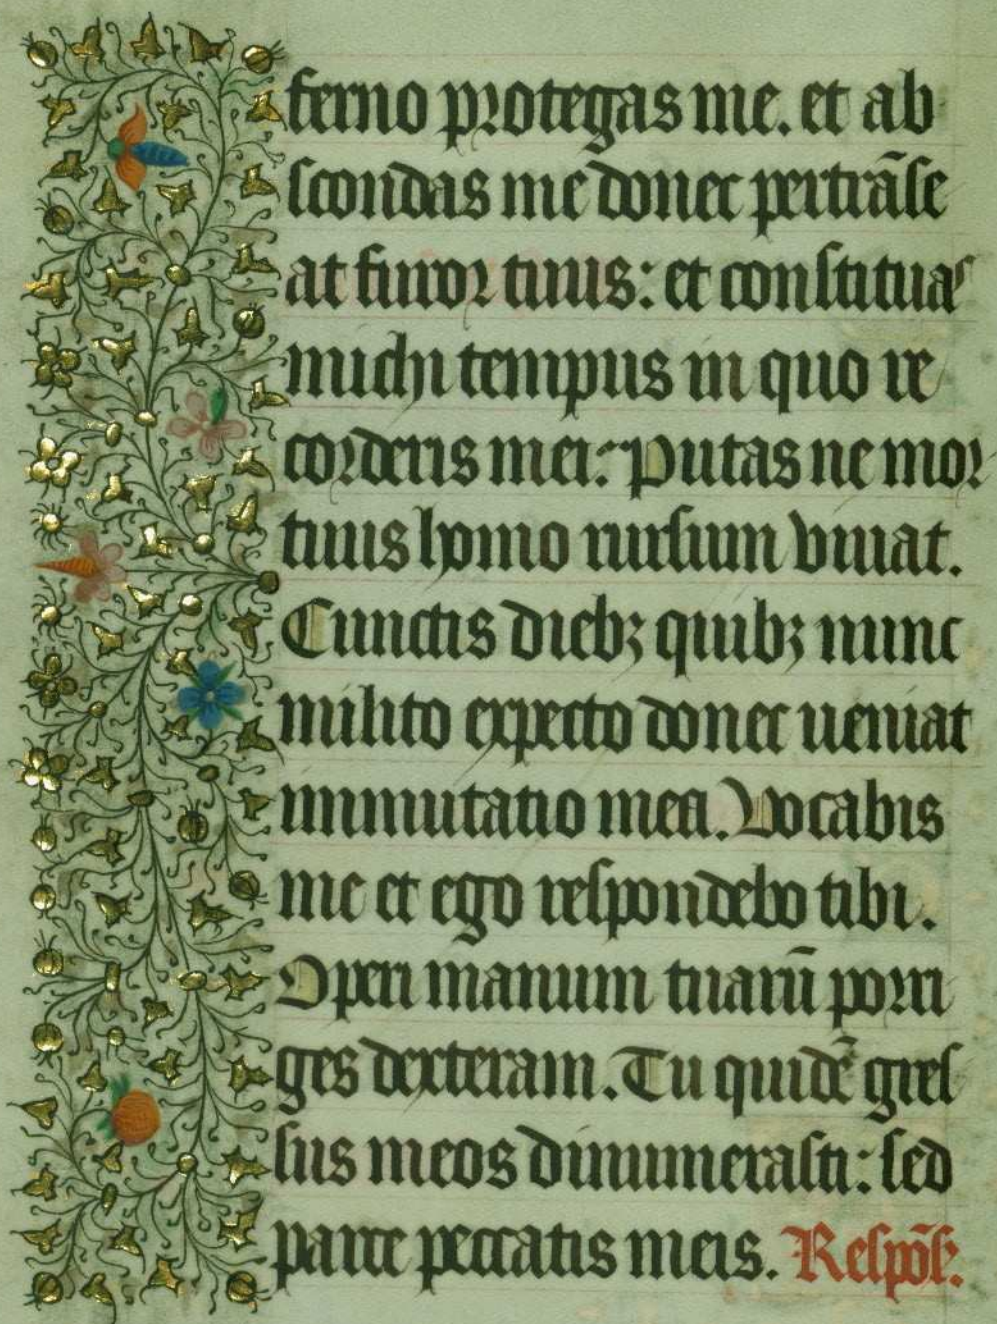 ferno protegas me. et ab
scondas me donec pertrãse
at furor tuus: et constituas
michi tempus in quo re
corderis mei: Putas ne mor
tuus homo rursum vivat.
Cunctis diebʒ quibʒ nunc
milito expecto donec ueniat
inmutatio mea. Vocabis
me et ego respondebo tibi.
Operi manuum tuarũ porri
ges dexteram. Tu quidẽ gres
sus meos dinumerasti: sed
parce peccatis meis. Respõs.